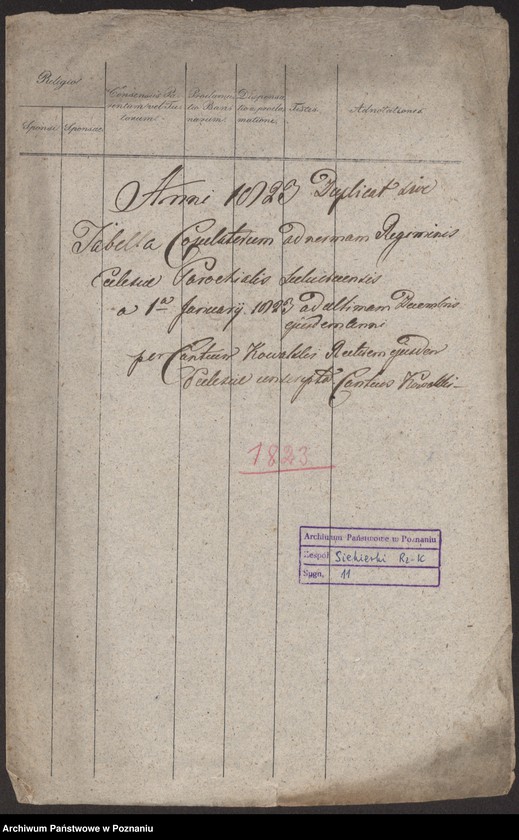 Religio
Sponsi Sponsae
Consensus Parentum vel Tutorum
Dispensatio
Testes
Adnotationes
Anni 1823 Duplicat sive
Tabella Copulatorum ad normam Regiminis
Ecclesiae Parochialis
a 1ma January 1823 ad ultimam Decembris
ejusdem Anni
per Cantium Kowalski Rectorem ejusdem
Ecclesiae conscripta Cantius Kowalski
1823
Archiwum Państwowe w Poznaniu
Zespół Siekierki Rz-K
Sygn. 11
Archiwum Państwowe w Poznaniu